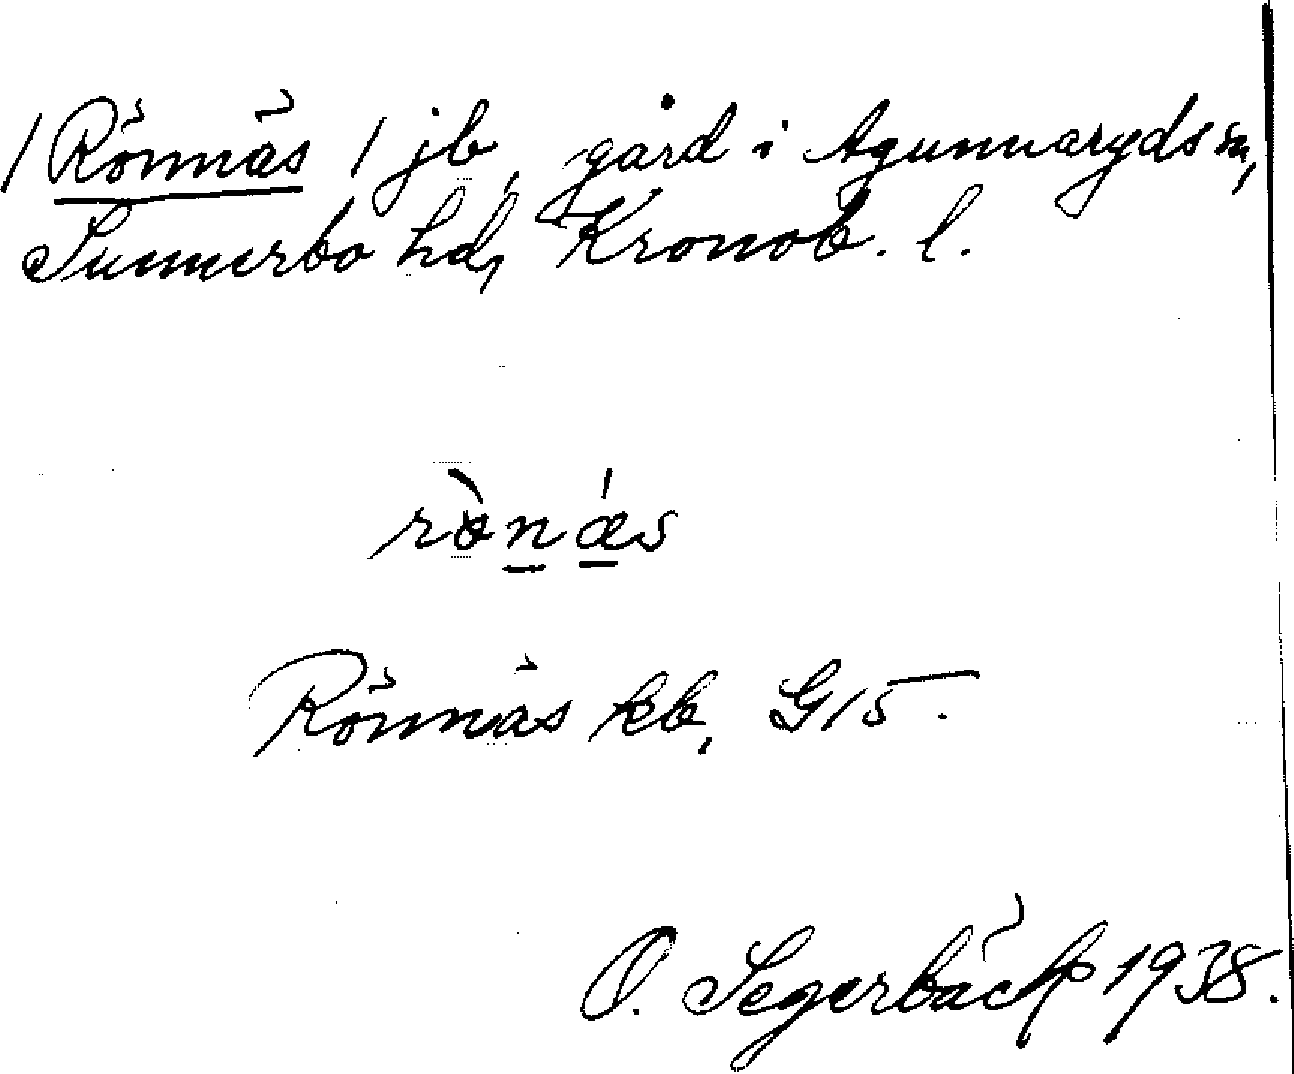 / Rönnäs / jb, gård i Agunnaryds sn,
Sunnerbo hd, Kronob. l.
rònǽs
Rönnäs kb, G15.
O. Segerbäck 1938.